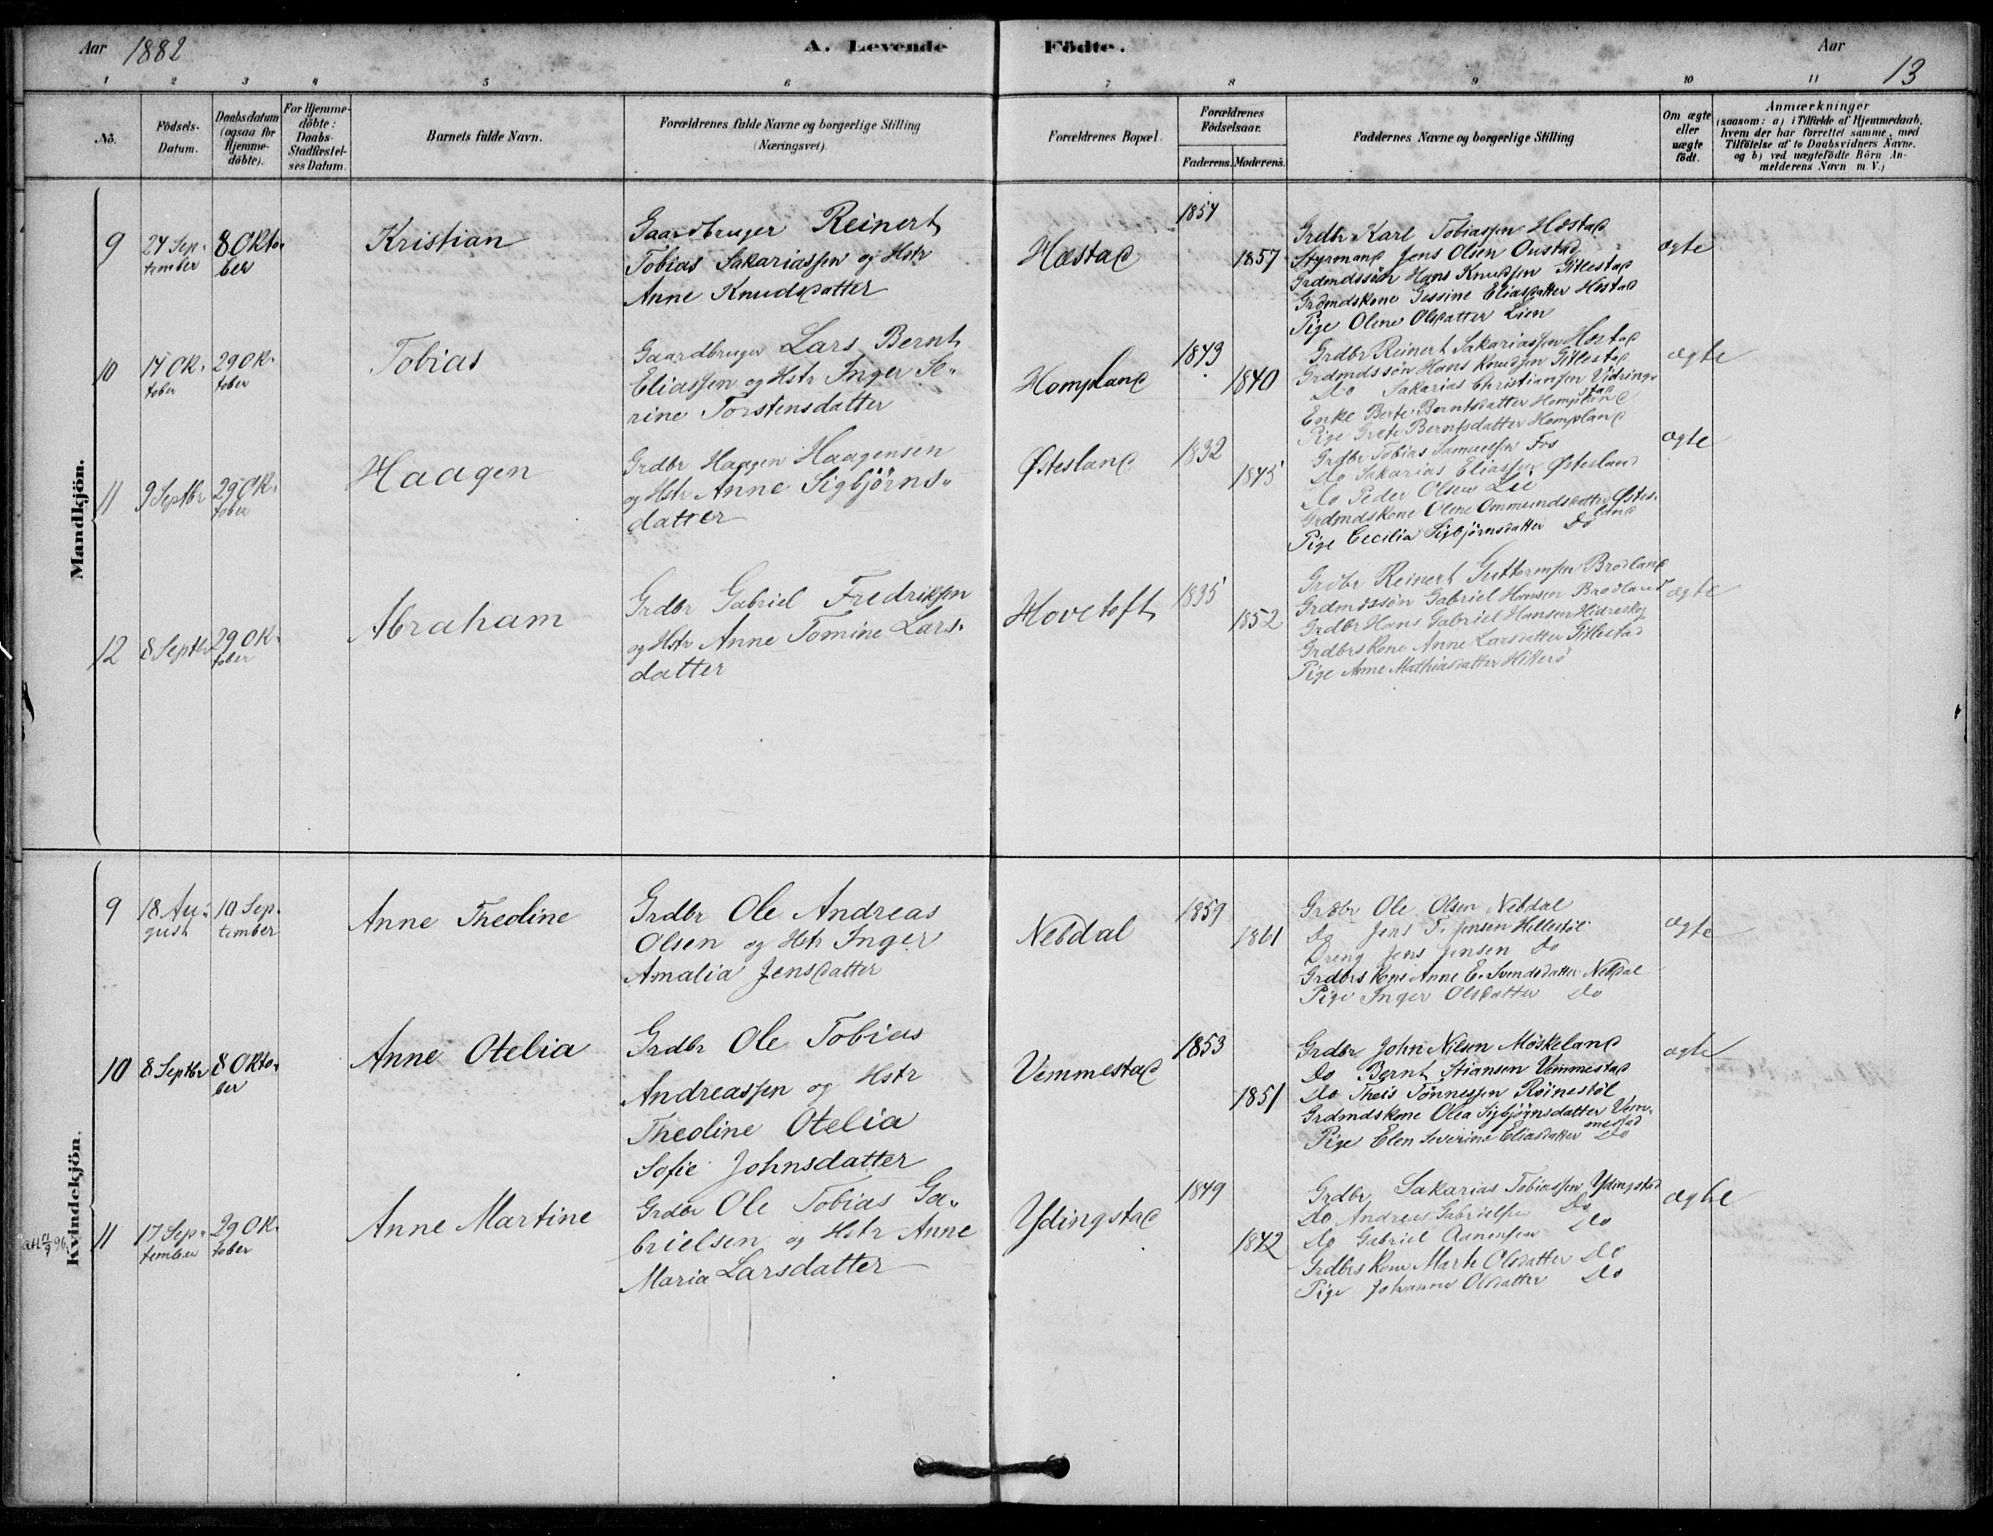 Aar 1882
A. Levende Födte.
Aar
13
1 2 3 4 5 6 7 8 9 10 11
No.
Födsels-
Datum.
Daabsdatum
(ogsaa for
Hjemme-
döbte).
For Hjemme-
döbte:
Daabs-
Stadfæstel-
ses Datum.
Barnets fulde Navn.
Forældrenes fulde Navne og borgerlige Stilling
(Næringsvei).
Forældrenes Bopæl.
Forældrenes
Födselsaar.
Faderens. Moderens.
Faddernes Navne og borgerlige Stilling
Om ægte
eller
uægte
födt.
Anmærkninger
(saasom: a) i Tilfælde af Hjemmedaab,
hvem der har forrettet samme, med
Tilföielse af to Daabsvidners Navne.
og b) ved uægtefödte Börn An-
melderens Navn m. V.)
Mandkjön.
9
24 Sep-
tember
8 Okto-
ber
Kristian
Gaardbruger Reinert
Tobias Sakariassen og Hstr
Anne Knudsdatter
Hæstad
1857
1857
Grdbr Karl Tobiassen Hæstad
Styrmand Jens Olsen Oustad
Grdmdssön Hans Knudsen Gitlestad
Grdmdskone Gessine Eliasdatter Hæstad
Pige Olene Olsdatter Lien
ægte
10
14 Ok-
tober
29 Ok-
tober
Tobias
Gaardbruger Lars Bernt
Eliassen og Hstr Inger Se-
rine Torstensdatter
Hompland
1843
1840
Grdbr Reinert Sakariassen Hæstad
Grdmdssön Hans Knudsen Gitlestad
Do Sakarias Christiansen Vidrings
tad
Enke Berte Berntsdatter Hompland
Pige Grete Berntsdatter Hompland
ægte
11
9 Septbr
29 Ok-
tober
Haagen
Grdbr Haagen Haagensen
og Hstr Anne Sigbjørns-
datter
Østesland
1832
1845
Grdbr Tobias Samuelsen Fos
Do Sakarias Eliassen Østesland
Do Peder Olsen Lie
Grdmdskone Olene Ommundsdatter Østes-
land
Pige Cecilia Sigbjørnsdatter Do
ægte
12
8 Septbr
29 Ok-
tober
Abraham
Grdbr Gabriel Fredriksen
og Hstr Anne Tomine Lars-
datter
Hovetoft
1835
1852
Grdbr Reinert Guttormsen Brødland
Grdmdssön Gabriel Hansen Brødland
Grdbr Hans Gabriel Hansen Hidreskog
Grdbrskone Anne Larsdatter Gitlestad
Pige Anne Mathiasdatter Hitterö
ægte
Kvindekjön.
9
18 Au-
gust
10 Sep-
tember
Anne Theoline
Grdbr Ole Andreas
Olsen og Hstr Inger
Amalia Jensdatter
Nebdal
1859
1861
Grdbr Ole Olsen Nebdal
Do Jens T. Jensen Hillestøl
Dreng Jens Jensen Do
Grdbrskone Anne E. Svendsdatter Nebdal
Pige Inger Olsdatter Do
ægte
10
8 Septbr
8 Okto-
ber
Anne Otelia
Grdbr Ole Tobias
Andreassen og Hstr
Theoline Otelia
Sofie Johnsdatter
Vemmestad
1853
1851
Grdbr John Nilsen Møskeland
Do Bernt Stiansen Vemmestad
Do Theis Tönnessen Röinestöl
Grdmdskone Olea Sigbjørnsdatter Vem-
mestad
Pige Elen Severine Eliasdatter Do
ægte
11
17 Sep-
tember
29 Ok-
tober
Anne Martine
Grdbr Ole Tobias Ga-
brielsen og Hstr Anne
Maria Larsdatter
Ydingstad
1849
1842
Grdbr Sakarias Tobiassen Ydingstad
Do Andreas Gabrielsen Do
Do Gabriel Aanensen Do
Grdbrskone Marte Olsdatter Do
Pige Johanne Olsdatter Do
ægte